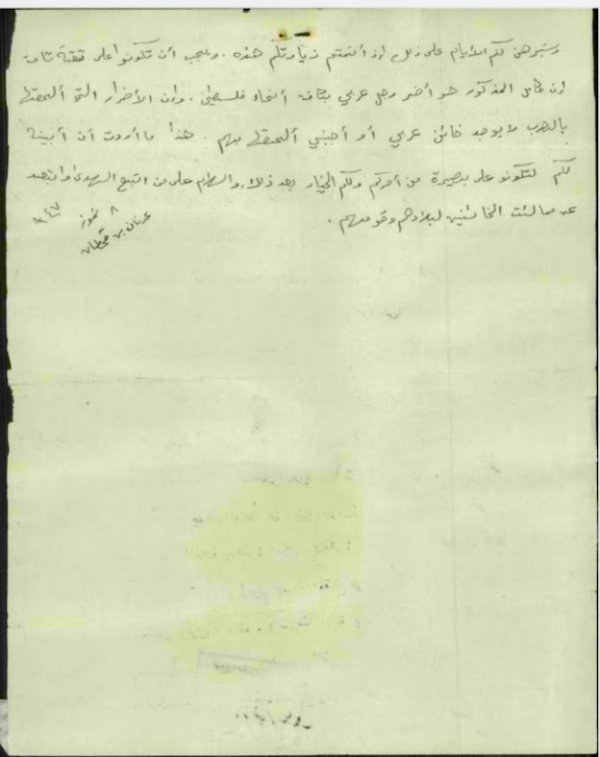 وستبرهن لكم الأيام على ذلك إذا أتممتم زيارتكم هذه. ويجب أن تكونوا على ثقة تامة
ان كامل المذكور هو أضر رجل عربي بكافة أنحاء فلسطين. وان الأضرار التي ألحقها
بالعرب لا يوجد خائن عربي أو أجنبي ألحقها بهم. هذا ما أردت أن أبينه
لكم لتكونوا على بصيرة من أمركم ولكم الخيار بعد ذلك. والسلام على من اتبع الهدى وابتعد
عن ممالئة الخائنين لبلادهم وقومهم.
٨ تموز ٩٤٧
عدنان بن قحطان